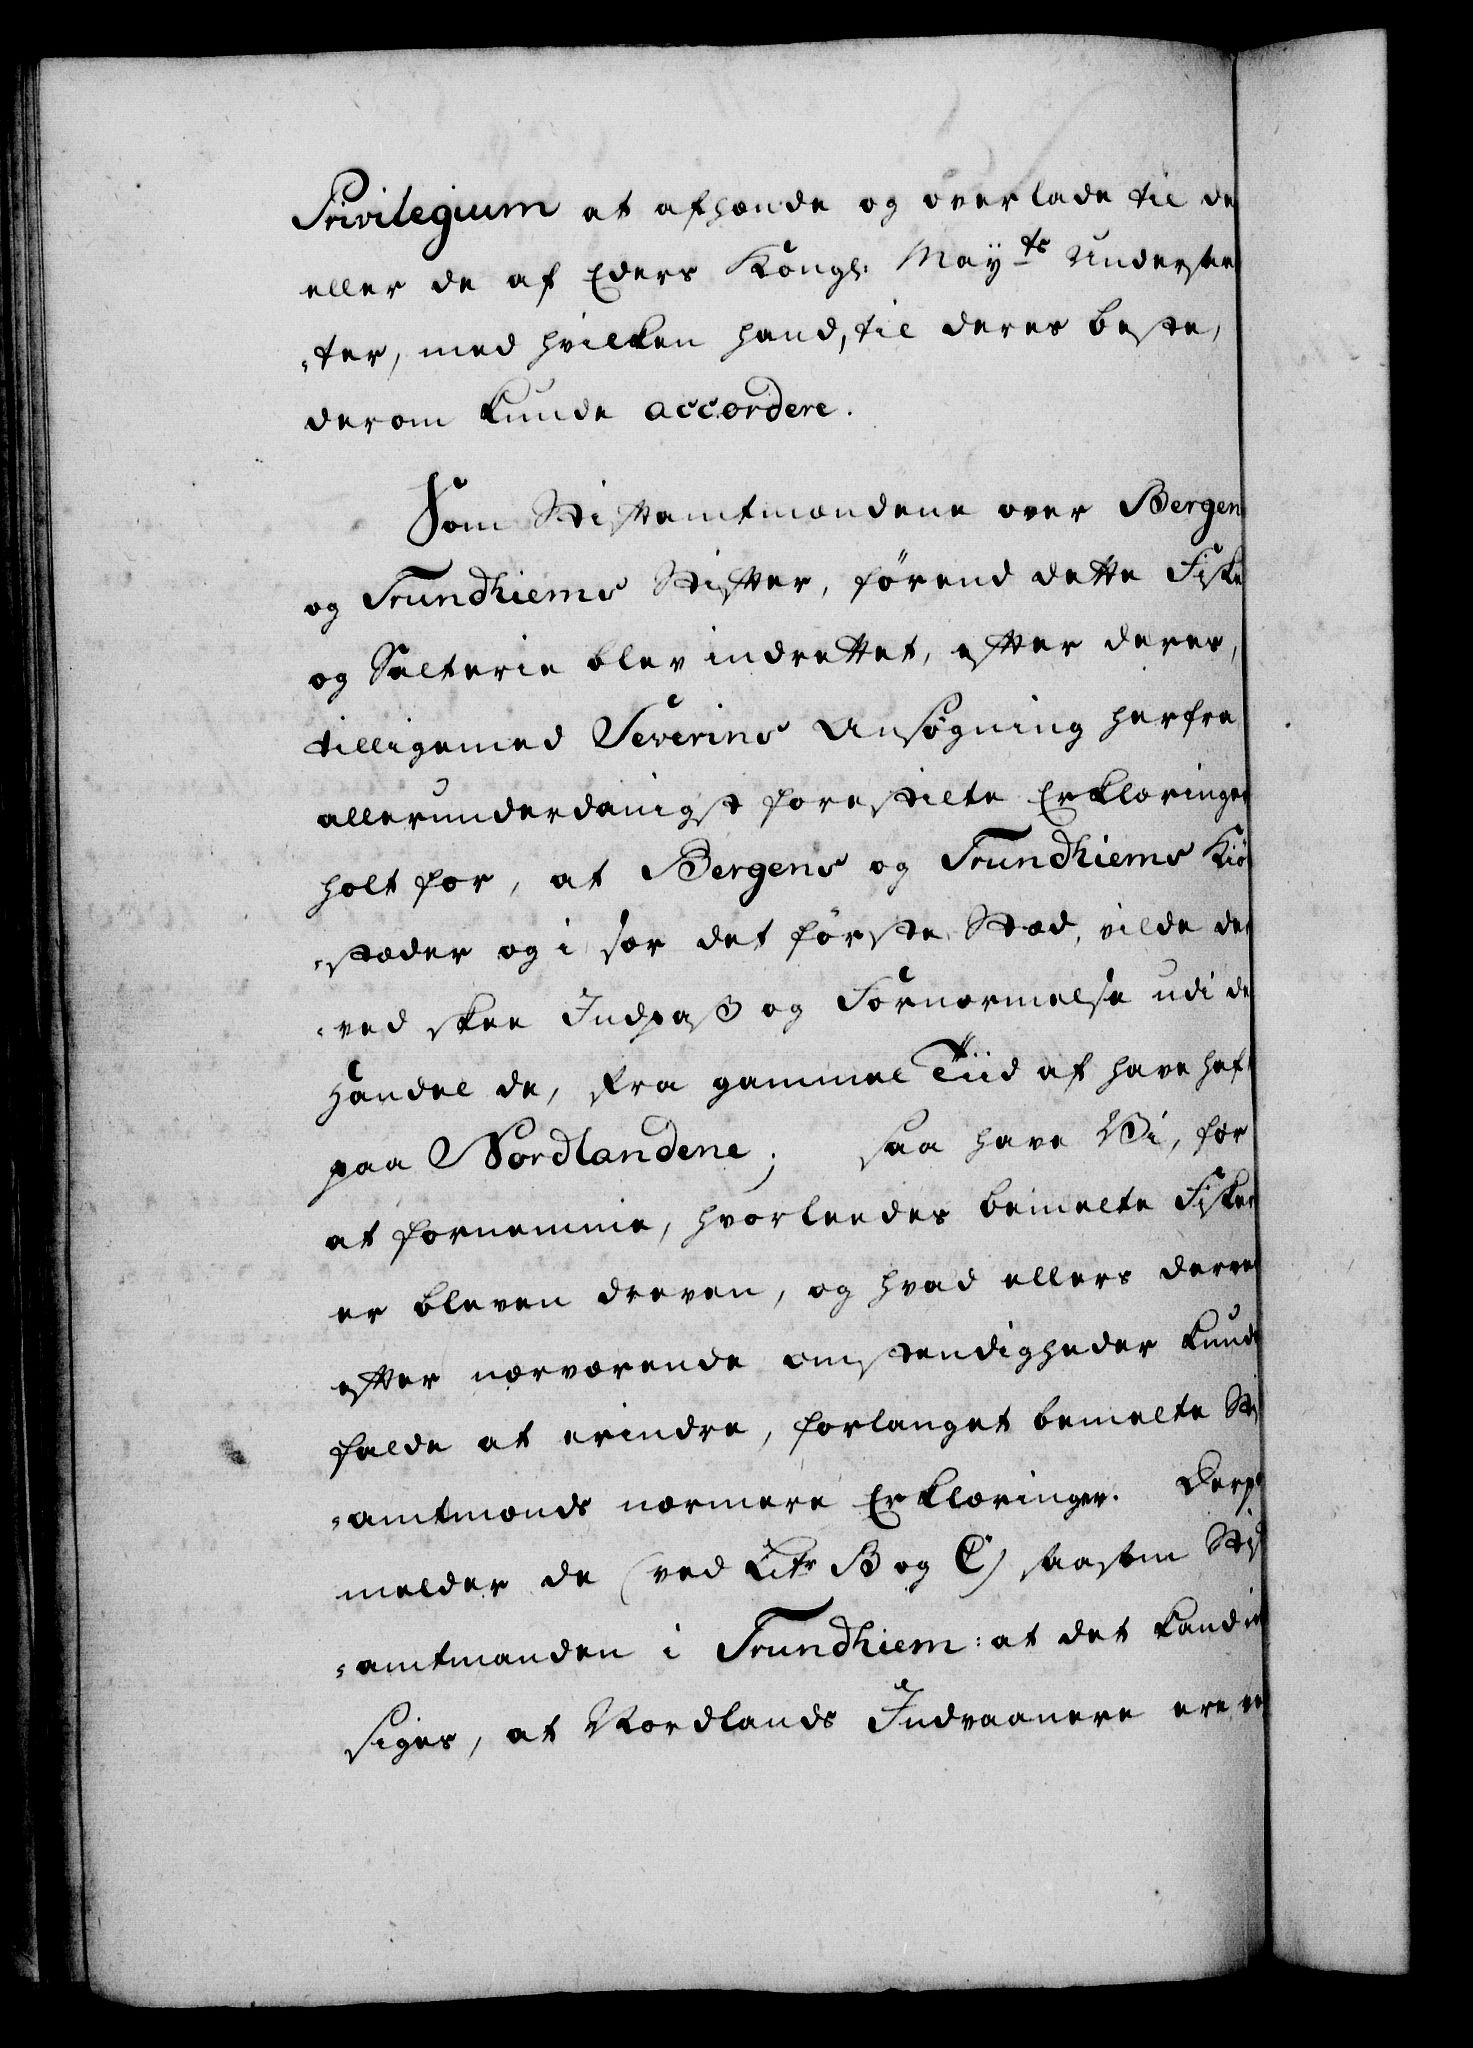 Privilegium at afhænde og overlade til de
eller de af Eders Kongl: May:ts Undersaat
-ter, med hvilken hand, til deres beste,
derom kunde accordere.
Som Stiftamtmændene over Bergen
og Trundhiems Stifter, førend dette Fiske
og Salterie blev indrettet, efter deres,
tilligemed Severins Ansøgning herfra
allerunderdanigst forestilte Erklæringer
holt for, at Bergens og Trundhiems Kiøb
-stæder og i sær det første Stæd, vilde der
-ved skee Indpaß og Fornærmelse udi den
Handel de, fra gammel Tiid af have haft
paa Nordlandene; saa have Vi, for
at fornemme, hvorleedes bemelte Fiskerie
er bleven dreven, og hvad ellers derved
efter nærværende omstændigheder kunde
falde at erindre, forlanget bemelte Stift
-amtmænds nærmere Erklæringer. Derpaa
melder de (ved Litr B og C) saasom Stift
-amtmanden i Trundhiem: at det kand ej
siges, at Nordlands Indvaanere ere